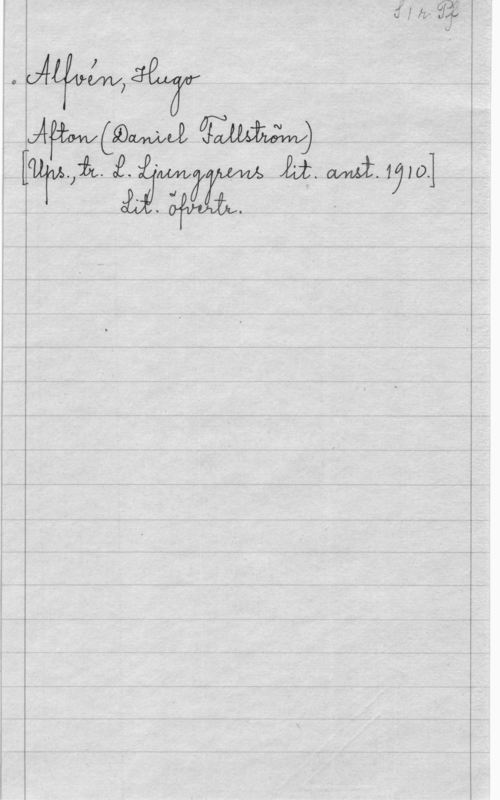 Alfvén, Hugo
Afton (Daniel Fallström)
[Ups., tr. L. Ljunggrens lit. anst. 1910.]
Lit. öfvertr.